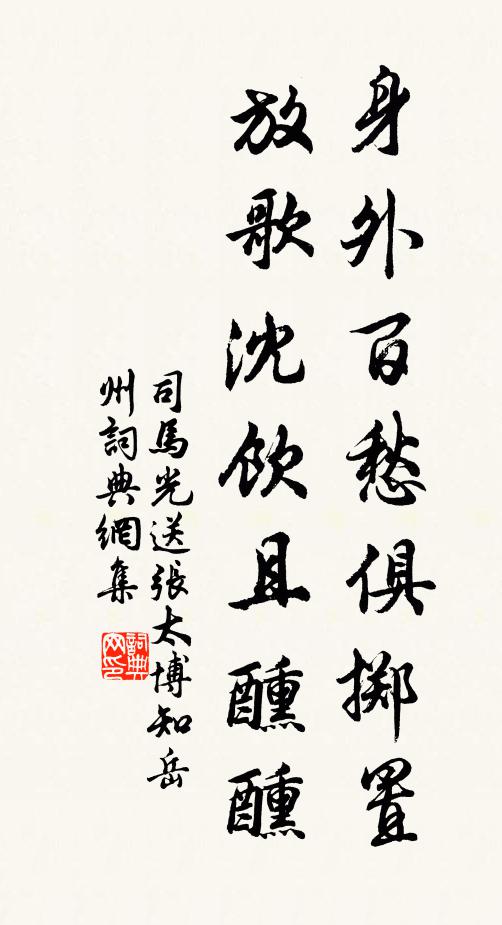 身外百愁俱掷置
放歌沈饮且醺醺
司馬光送張太博知岳
州詞典網集
詞典网印